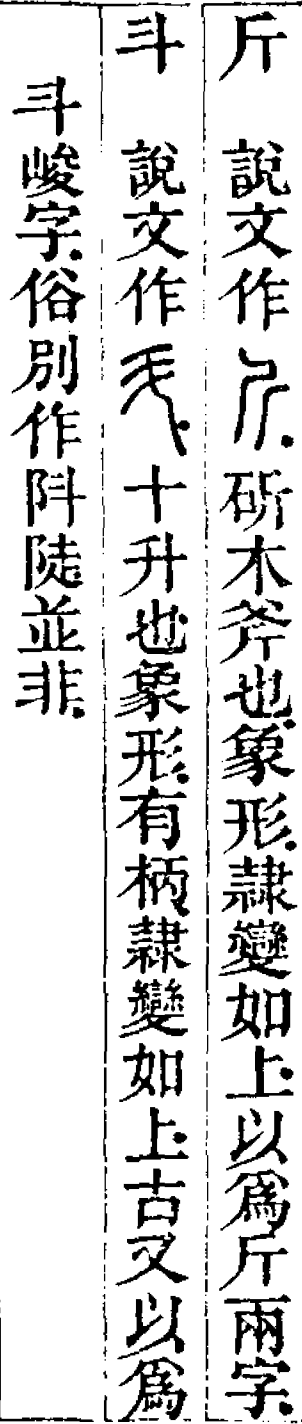 斤　說文作𣂑。斫木斧也。象形。隷變如上。以爲斤兩字。
斗　說文作。十升也象形。有柄隷變如上古又以爲
斗峻字。俗別作阧陡並非。